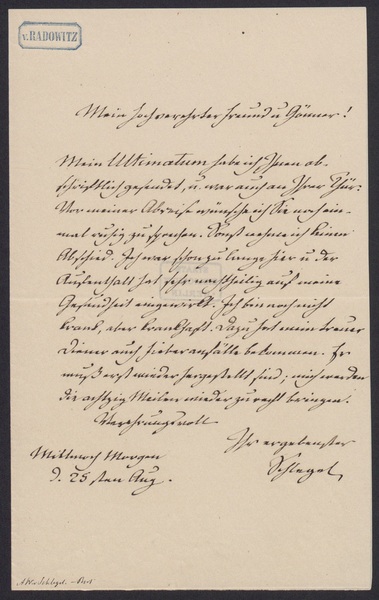 v. RADOWITZ
Mein hochverehrter Freund u Gönner!
Mein Ultimatum habe ich Ihnen ab-
schriftlich gesendet, u. war auch an Ihrer Thür.
Vor meiner Abreise wünsche ich Sie noch ein-
mal ruhig zu sprechen. Sonst nehme ich keinen
Abschied. Ich war schon zu lange hier u der
Aufenthalt hat sehr nachtheilig auf meine
Gesundheit eingewirkt. Ich bin noch nicht
krank, aber krankhaft. Dazu hat mein treuer
Diener auch Fieberanfälle bekommen. Er
muß erst wieder hergestellt sind; mich werden
die achtzig Meilen wieder zurecht bringen.
Verehrungsvoll
Ihr ergebenster
Schlegel
Mittwoch Morgen
d. 25sten Aug.